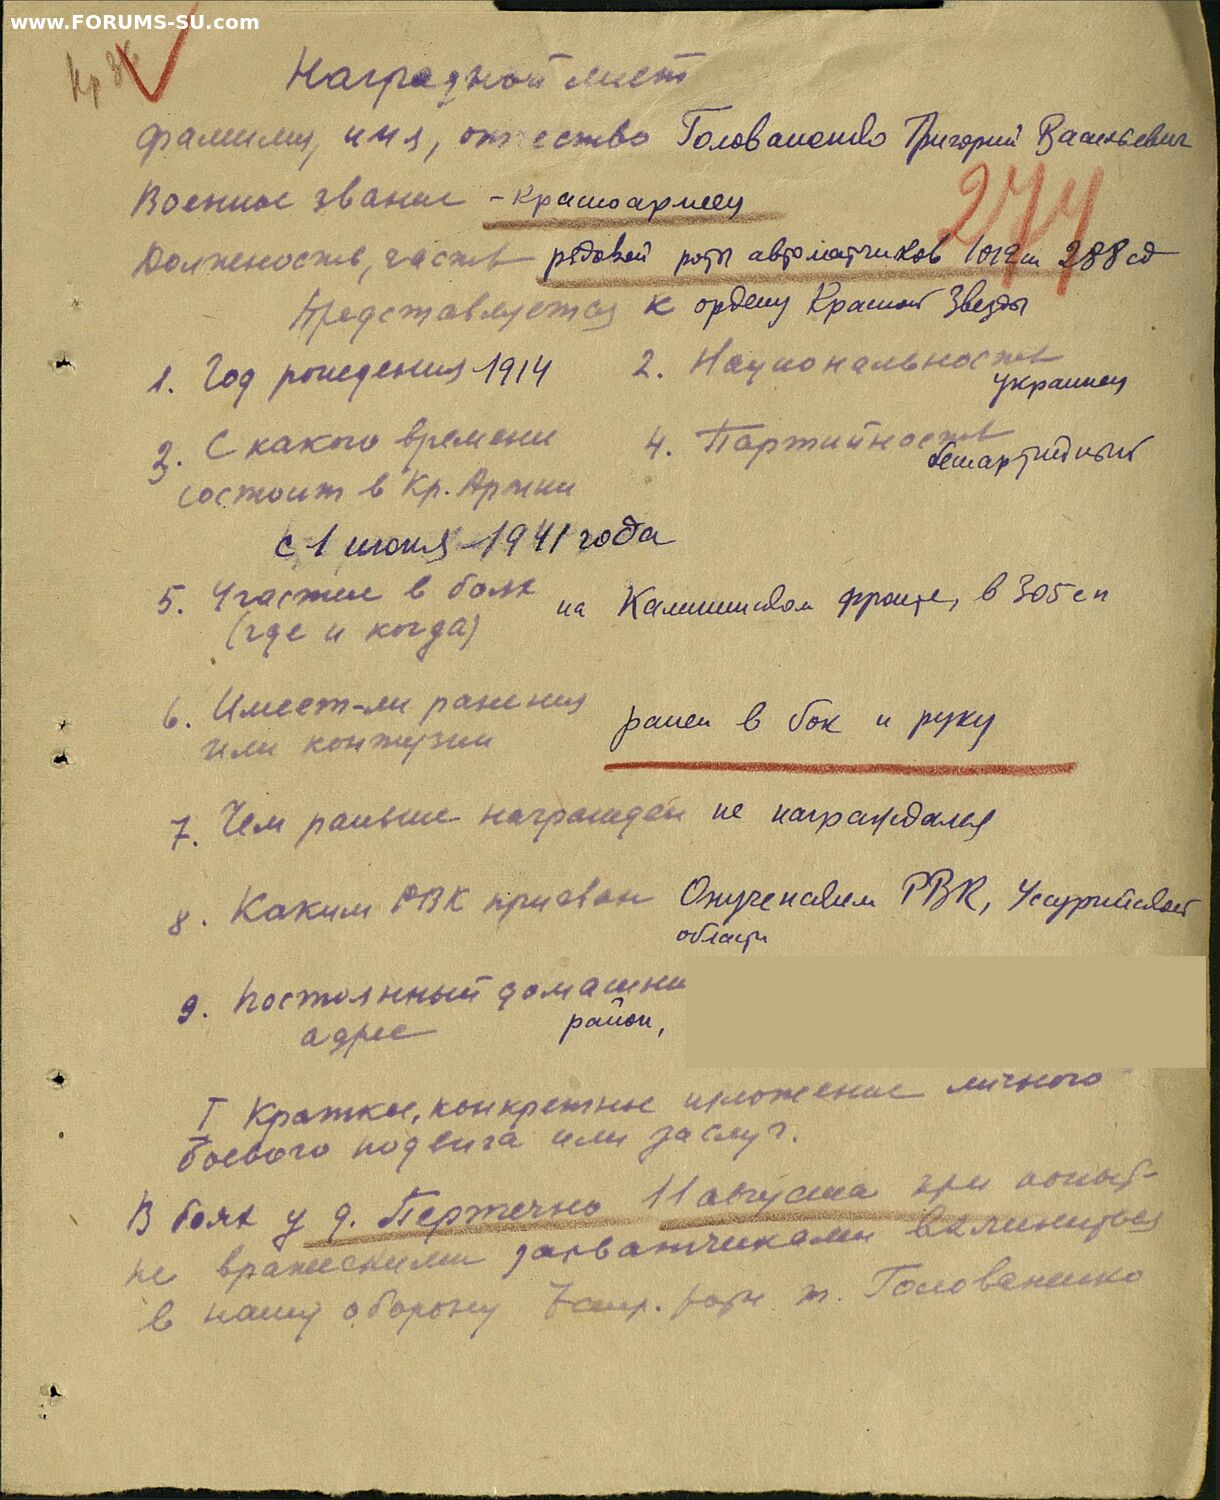 www.FORUMS-SU.com
Наградной лист
фамилия, имя, отчество Голованенко Григорий Васильевич
277
Военное звание - красноармеец
Должность, часть рядовой роты автоматчиков 1012 сп 288 сд
Представляется к ордену Красной Звезды
1. Год рождения 1914 2. Национальность
украинец
3. С какого времени 4. Партийность
беспартийный
состоит в Кр. Армии
с 1 июня 1941 года
5. Участие в боях на Калининском фронте, в 305 сп
(где и когда)
6. Имеет-ли ранения ранен в бок и руку
или контузии
7. Чем раньше награжден не награждался
8. Каким РВК призван РВК, Уссурийской
области
9. Постоянный домашний
адрес район,
I Краткое, конкретное изложение личного
боевого подвига или заслуг.
В боях у д. 11 августа при попыт-
ке вражескими захватчиками вклиниться
в нашу оборону роты т. Голованенко